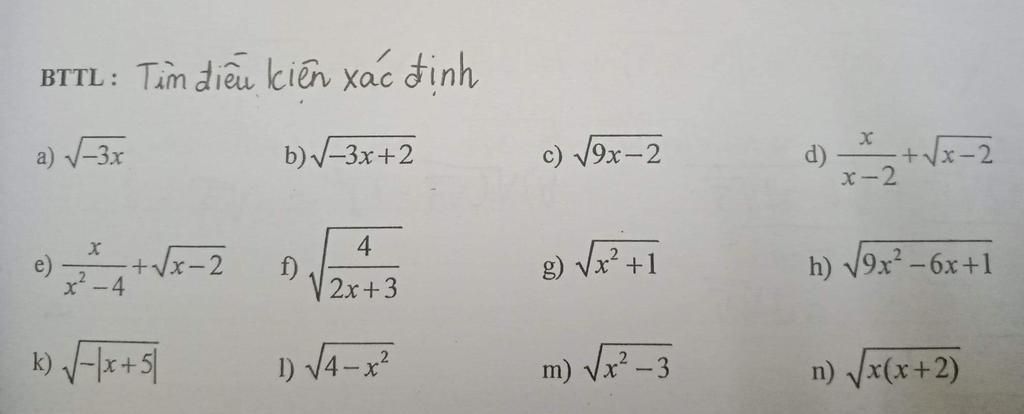 BTTL : Tìm điều kiện xác định
a) √(-3x) b) √(-3x+2) c) √(9x-2) d) x/(x-2) + √(x-2)
e) x/(x²-4) + √(x-2) f) √(4/(2x+3)) g) √(x²+1) h) √(9x²-6x+1)
k) √(-|x+5|) l) √(4-x²) m) √(x²-3) n) √(x(x+2))